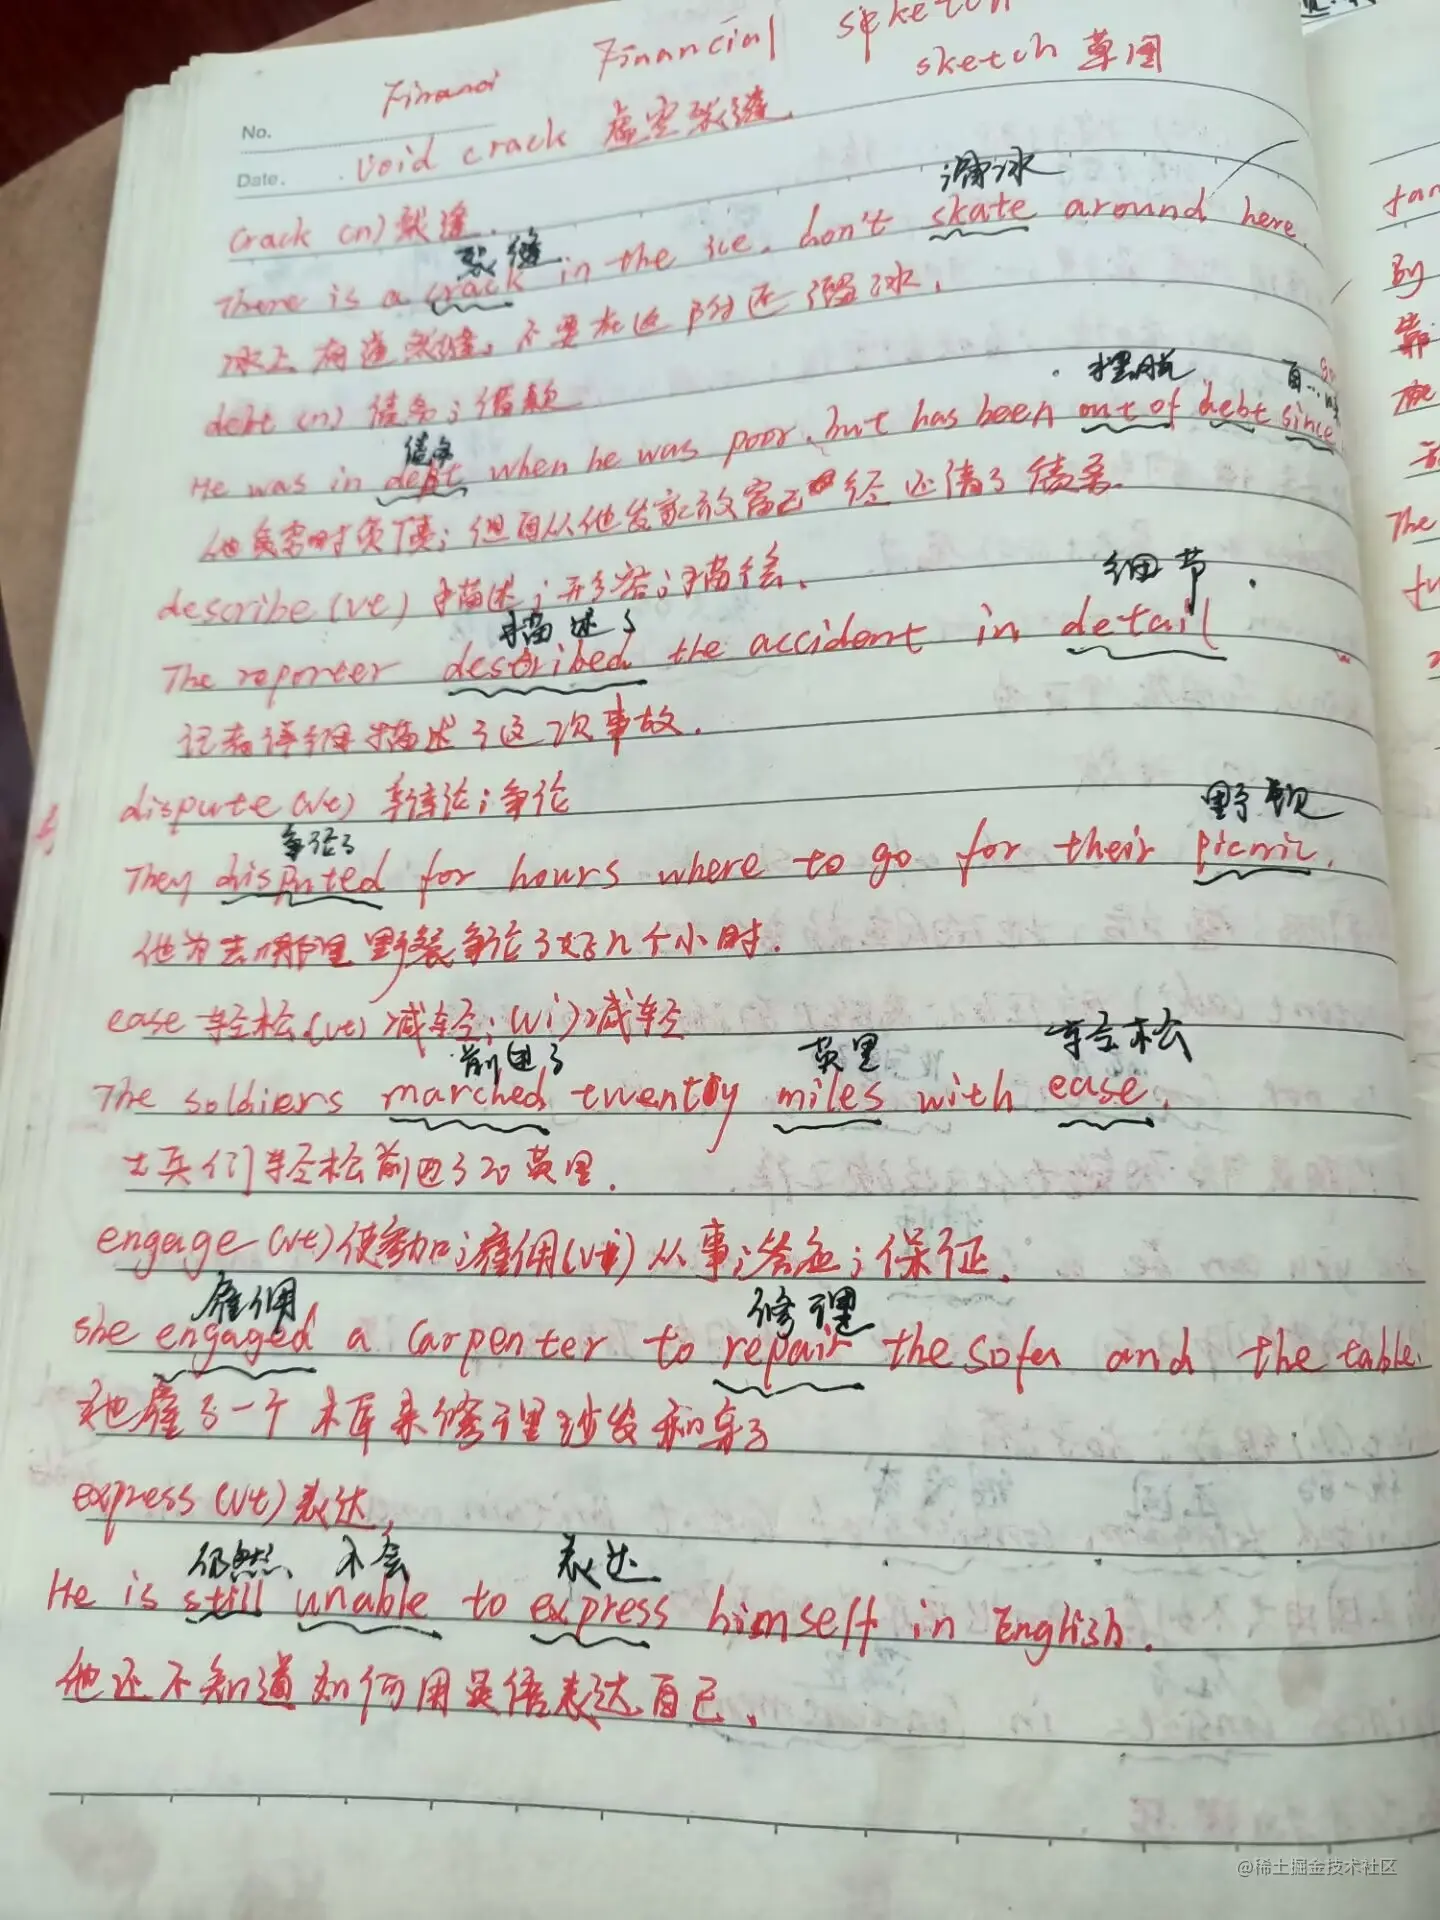 Financial
sketch 草图
No.
Date.
void crack 虚空裂缝.
crack (n) 裂缝.
溜冰
裂缝
There is a crack in the ice. don't skate around here.
冰上有道裂缝，不要在这附近溜冰.
debt (n) 债务; 借款
摆脱
债务
He was in debt when he was poor, but has been out of debt since
他贫穷时负了债; 但自从他发家致富已经还清了债务.
describe (vt) 描述; 形容; 描绘.
细节.
描述了
The reporter described the accident in detail
记者详细描述了这次事故.
dispute (vt) 辩论; 争论
野炊
争论了
They disputed for hours where to go for their picnic.
他为去哪里野餐争论了好几个小时.
ease 轻松 (vt) 减轻; (vi) 减轻
前进了 英里 轻松
The soldiers marched twenty miles with ease.
士兵们轻松前进了20英里.
engage (vt) 使参加; 雇佣 (vi) 从事; 答应; 保证.
雇佣 修理
she engaged a carpenter to repair the sofa and the table.
她雇了一个木匠来修理沙发和桌子
express (vt) 表达,
仍然 不会 表达
He is still unable to express himself in English.
他还不知道如何用英语表达自己.
The
@稀土掘金技术社区